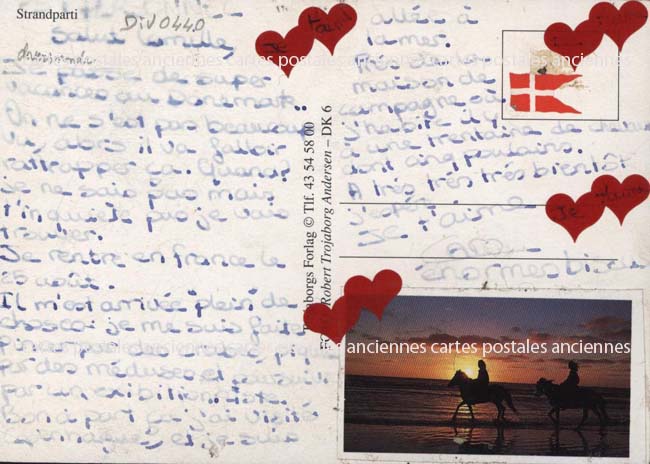 Strandparti
DIV0440
Salut Camille,
Je passe de super
vacances au Danemark.
On ne s'est pas beaucoup
vu, alors il va falloir
rattraper ça. Quand?
je ne sais pas mais
t'inquiète pas je vais
trouver.
Je rentre en france le
25 août.
Il m'est arrivée plein de
choses: je me suis faite
piquer
par des méduses et
par un exibitionniste.
Bon à part ça j'ai visité
et je suis
allée à
la mer.
maison de
campagne où
j'habite il y
à une trentaine de chevaux
dont cinq poulains.
A très très très bientôt
Je t'aime
énormes bisous
Je t'aime
Je t'aime
Forlag © Tlf. 43 54 58 00
Robert Trojaborg Andersen – DK 6
anciennes cartes postales anciennes cartes postales anciennes cartes postales anciennes
anciennes cartes postales anciennes